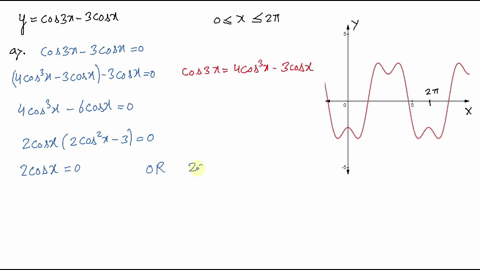 y = cos3x - 3cosx
0 ≤ x ≤ 2π
a). cos3x - 3cosx = 0
(4cos³x - 3cosx) - 3cosx = 0
cos3x = 4cos³x - 3cosx
4cos³x - 6cosx = 0
2cosx (2cos²x - 3) = 0
2cosx = 0 OR 2
Y
5
2π
0
5
X
-5